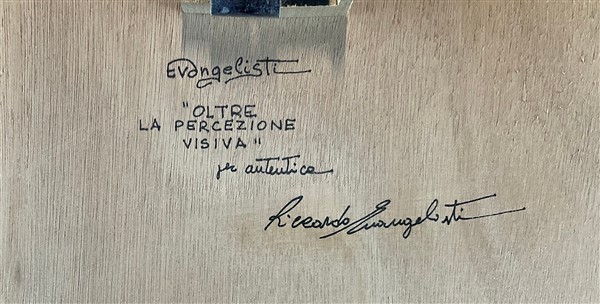 Evangelisti
"OLTRE
LA PERCEZIONE
VISIVA"
per autentica
Riccardo Evangelisti